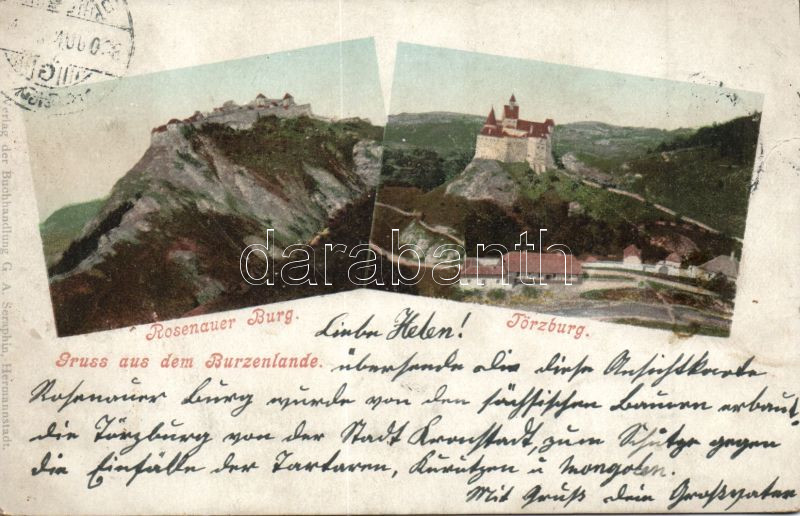 Rosenauer Burg.
Törzburg.
Gruss aus dem Burzenlande.
Liebe Helen!
übersende Dir diese Ansichtkarte
Rosenauer Burg wurde von den sächsischen Bauern erbaut.
die Törzburg von der Stadt Kronstadt, zum Schutze gegen
die Einfälle der Tartaren, Kurutzen u Mongolen.
Mit Gruß dein Großvater
Verlag der Buchhandlung G. A. Seraphin, Hermannstadt.
darabanth